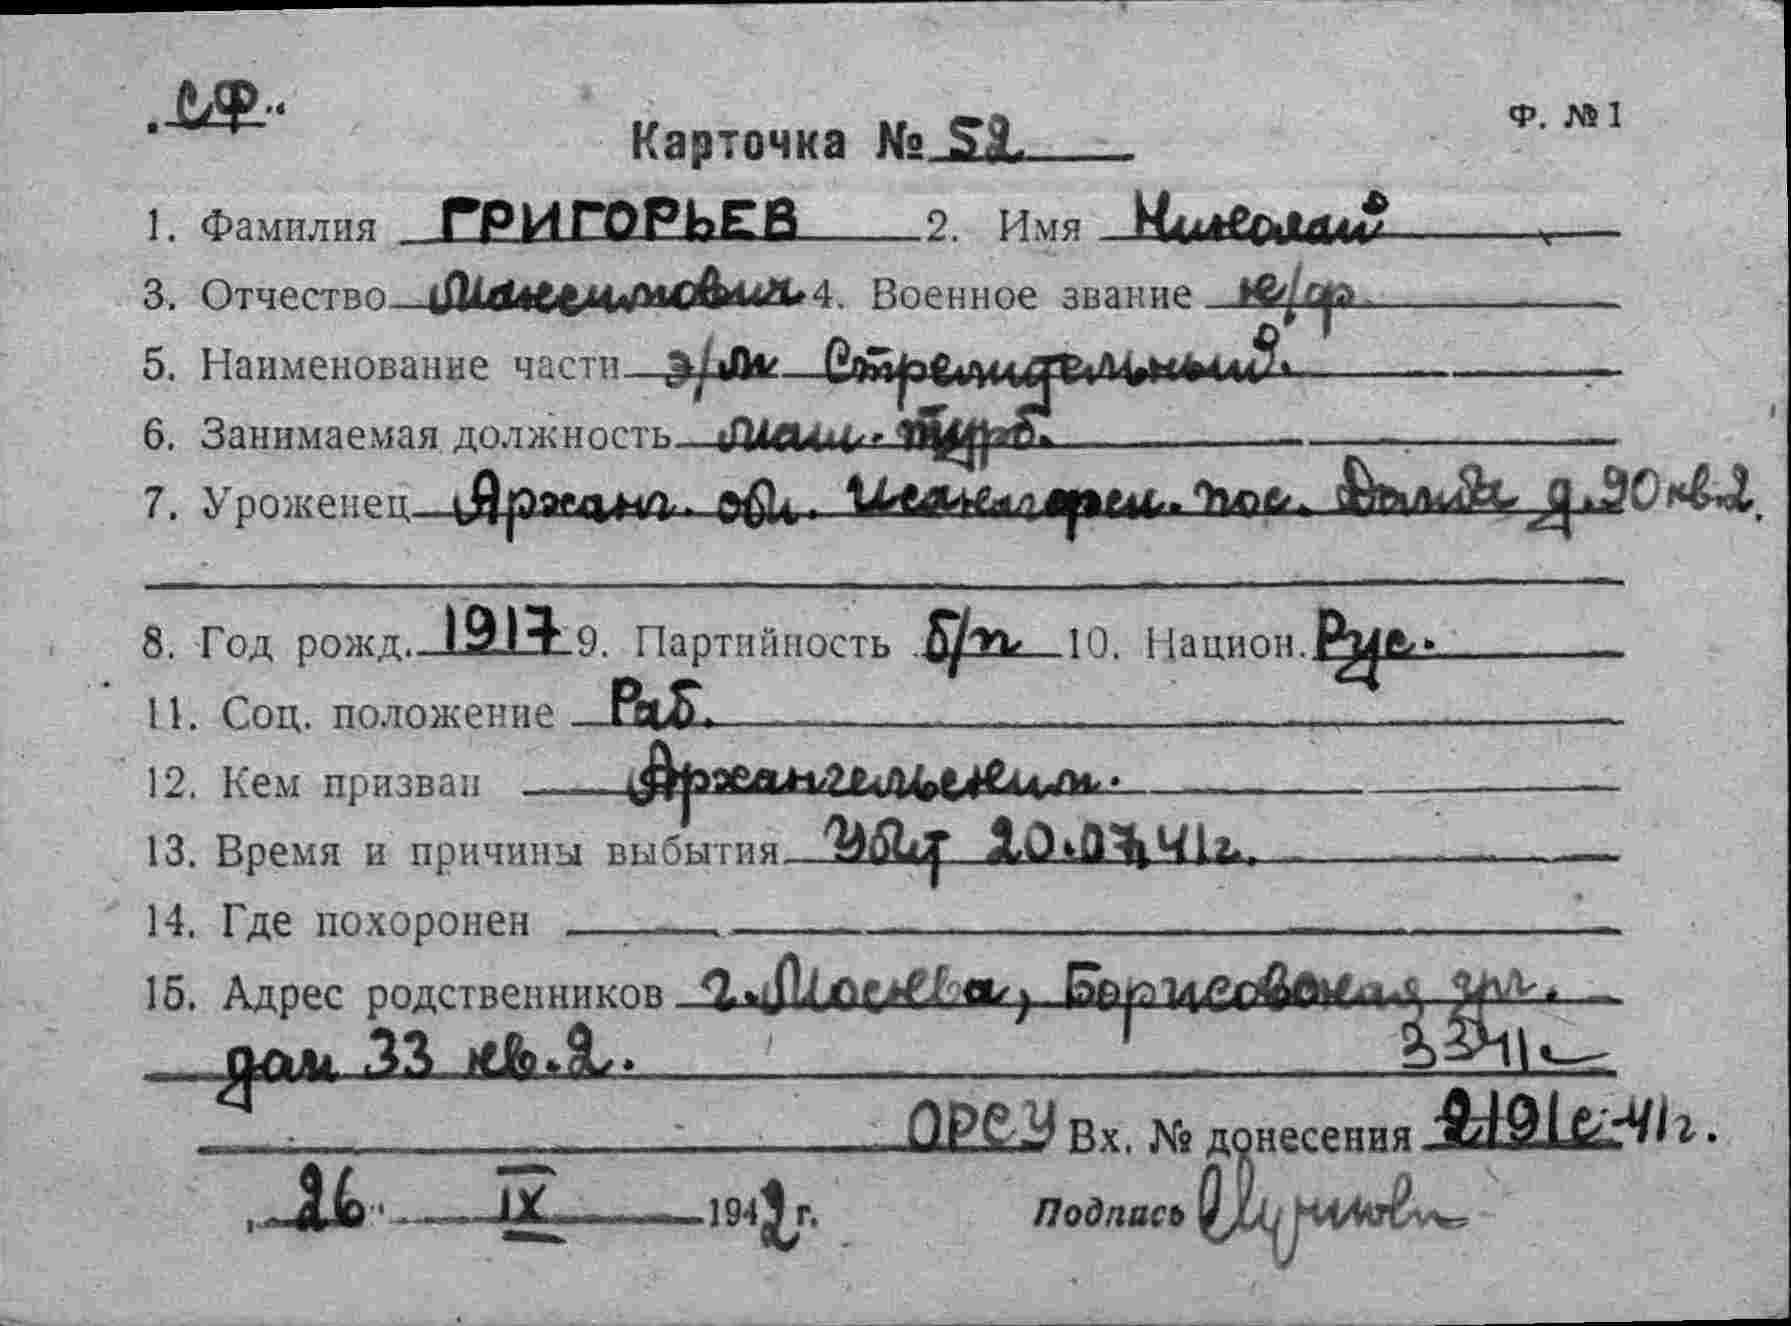 „СФ“
Ф. №1
Карточка № 52
1. Фамилия ГРИГОРЬЕВ 2. Имя Николай
3. Отчество Максимович 4. Военное звание к/ф
5. Наименование части э/м Стремительный.
6. Занимаемая должность маш. турб.
7. Уроженец Архан. обл. пос. д. 20 кв. 2.
8. Год рожд. 1917 9. Партийность б/п 10. Национ. Рус.
11. Соц. положение Раб.
12. Кем призван Архангельским.
13. Время и причины выбытия Убит 20.07.41г.
14. Где похоронен
15. Адрес родственников г. Москва, Борисовская ул.
дом 33 кв. 2.
ОРСУ Вх. № донесения 2191с-41г.
„26“ IX 1942 г. Подпись